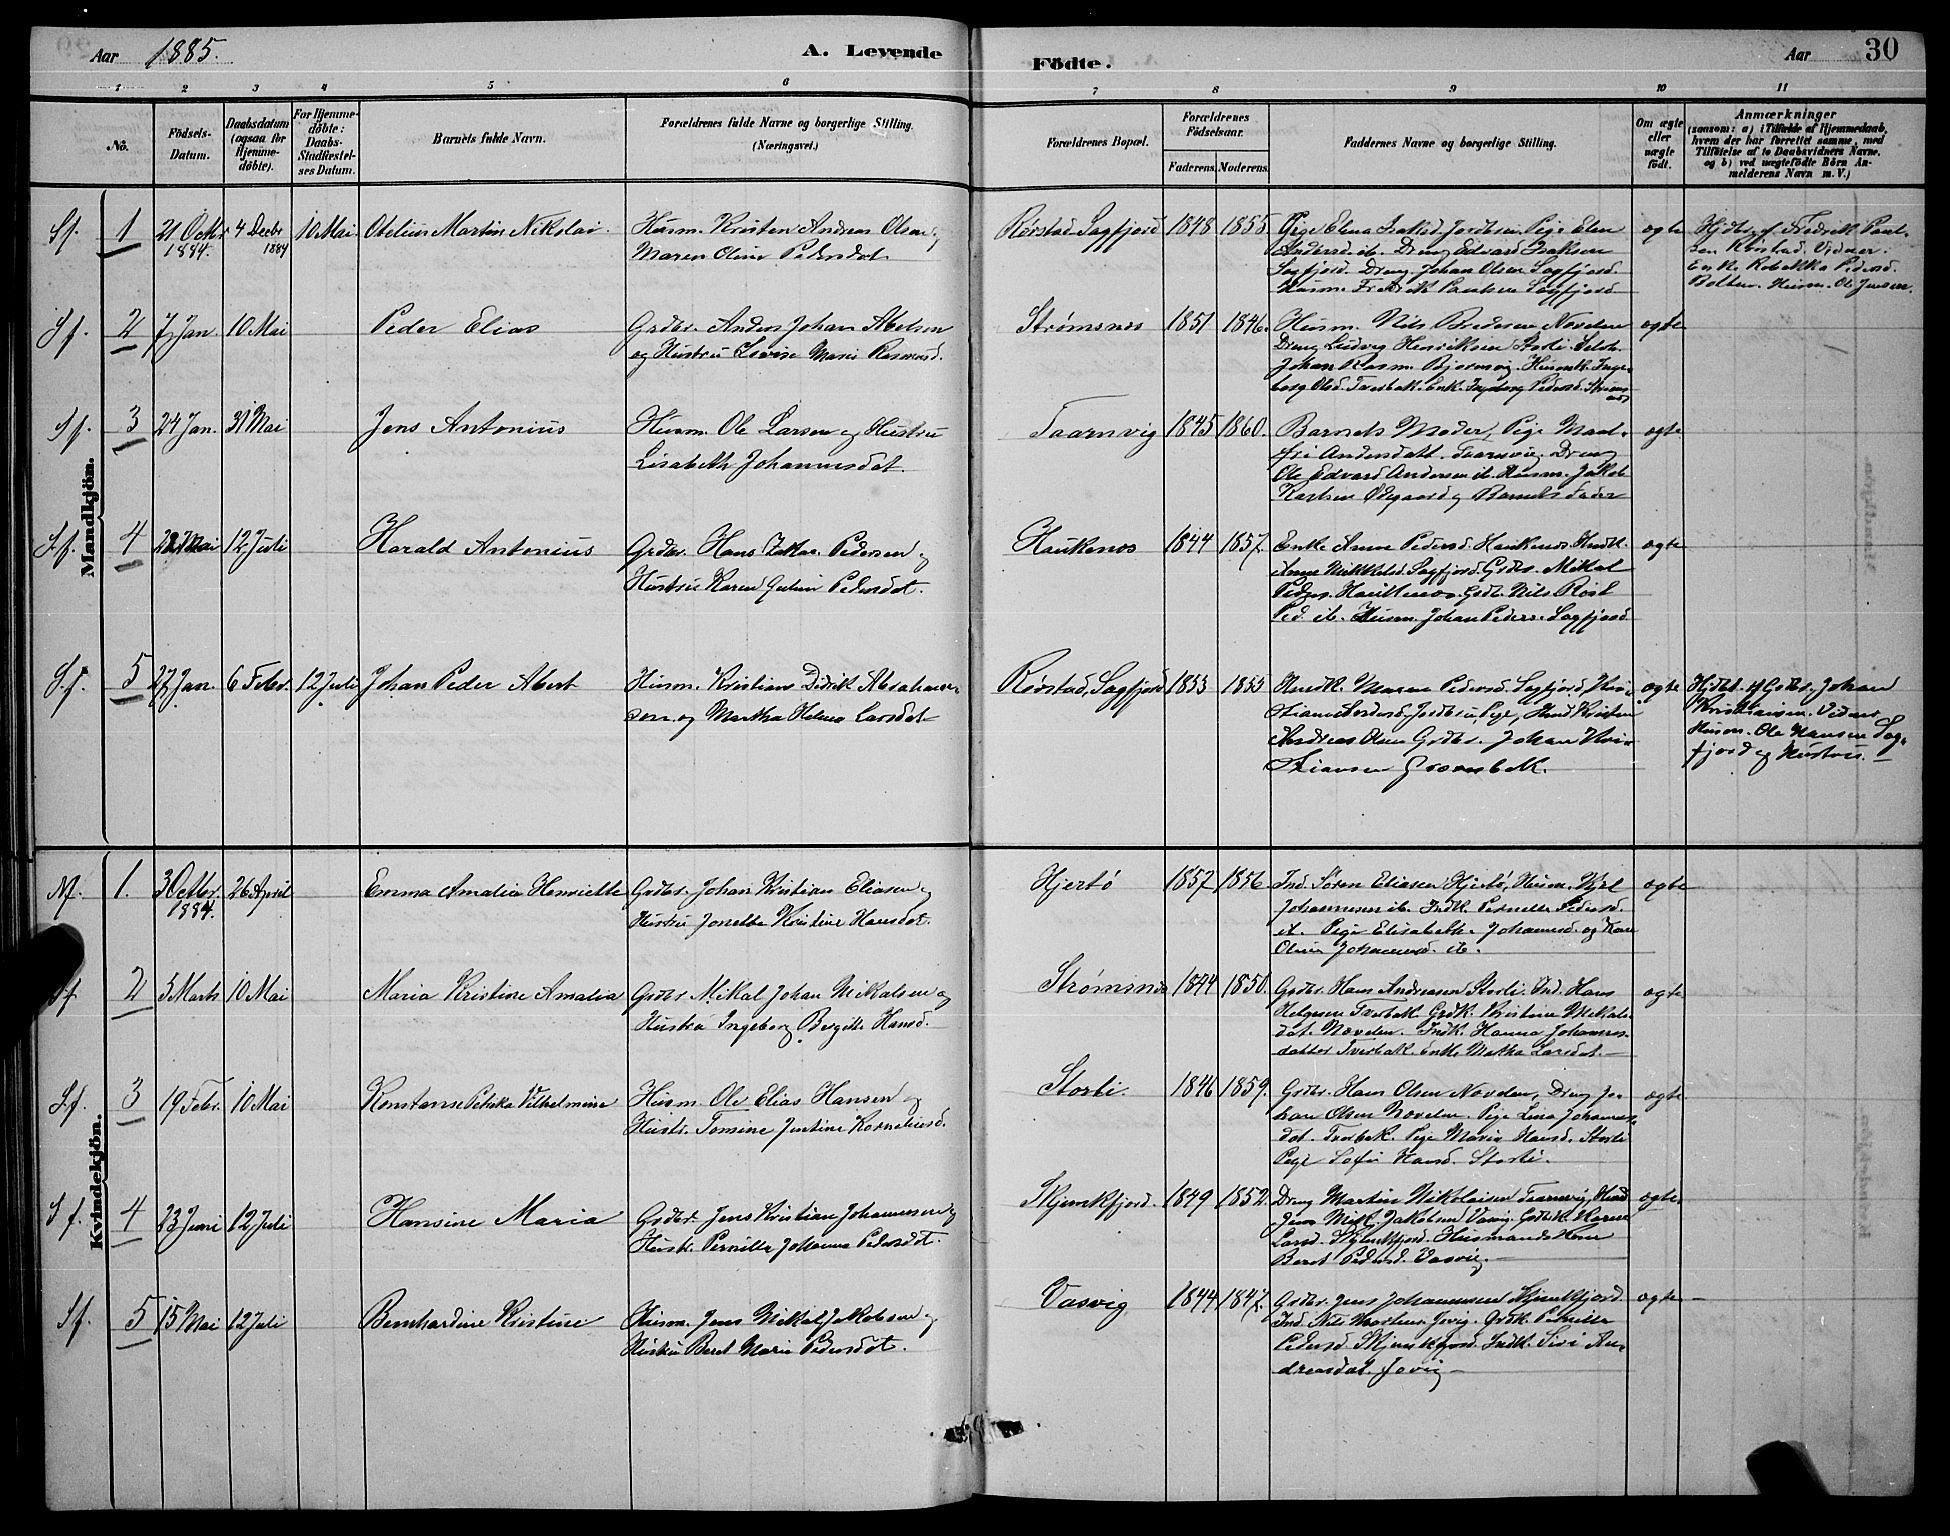 Aar 1885. A. Levende Födte. Aar 30
1 2 3 4 5 6 7 8 9 10 11
No.
Födsels-Datum.
Daabsdatum (ogsaa for Hjemmedöbte).
For Hjemmedöbte: Daabs-Stadfestelses Datum.
Barnets fulde Navn.
Forældrenes fulde Navne og borgerlige Stilling.
(Næringsvei.)
Forældrenes Bopæl.
Forældrenes Födselsaar.
Faderens. Moderens.
Faddernes Navne og borgerlige Stilling.
Om ægte eller uægte födt.
Anmærkninger
(saasom: a) i Tilfælde af Hjemmedaab, hvem der har forrettet samme, med Tilföielse af to Daabsvidners Navne, og b) ved uægtefödte Börn Anmelderens Navn m. V.)
Mandkjön.
Sf. 1 21 Octbr 1884. 4 Decbr 1884 10 Mai Otelius Martin Nikolai.
Husm. Kristen Andreas Olsen og
Maren Oline Pedersdat.
Rørstad, Sagfjord 1848 1855
Pige Elena Jordbru. Pige Elen
Andersd. ib. Dreng Edvard Isaksen
Sagfjord. Dreng Johan Olsen Sagfjord.
Husm. Fredrik Paulsen Sagfjord
ægte
Hjdbt. af Fredrik Paulsen Rørstad. Vidner:
Enke Rebekka Pedersd.
Husm. Ole Jensen.
Sf. 2 7 Jan. 10 Mai Peder Elias
Grdbr. Anders Johan Abelsen
og Hustru Lovise Marie Rasmusd.
Strømsnes 1851 1846.
Husm. Nils Bredesen Novelen
Dreng Ludvig Henriksen Storli.
Johan Rasm. Bjørnsvig. Huusmk. Ingeborg Olsd. Tverbak. Enk. Ingeborg Pedersd. Strømsnes
ægte
Sf. 3 24 Jan. 31 Mai Jens Antonius
Husm. Ole Larsen og Hustru
Lisabeth Johannesdat.
Taarnvig 1845 1860.
Barnets Moder, Pige
Andersdatt. Taarnvig. Dreng
Ole Edvard Andersen ib. Husm. Jakob
Ødegaard og Barnets Fader
ægte
Sf. 4 22 Mai 12 Juli Harald Antonius
Grdbr. Hans Zakar. Pedersen og
Hustru Karen Juline Pedersdat.
Haukenes 1844 1857.
Enke Anne Pedersd. Haukenes. Husmk.
Anne Mikkelsd. Sagfjord. Grdbr. Mikal
Peders. Haukenes. Grdbr. Nils Røst
Ped. ib. Husm. Johan Peders. Sagfjord
ægte
Sf. 5 27 Jan. 6 Febr. 12 Juli Johan Peder Abert
Husm. Kristian Didrik Abrahamsen og Martha Helena Larsdat
Rørstad, Sagfjord 1853 1855
Husmk. Maren Pedersd. Sagfjord,
Pige, Husm. Kristen
Andreas Olsen Grdbr. Johan Kristiansen Grønbek.
ægte
Hjdbt. af Grdbr. Johan
Kristiansen. Vidner
Husm. Ole Hansen Sagfjord og Hustru.
Kvindekjön.
M. 1. 3 Octbr. 1884. 26 April Emma Amalia Henriette
Grdbr. Johan Kristian Eliasen og
Hustru Jonetta Kristine Hansdat.
Hjertø 1857 1856
Ind. Søren Eliasen Hjertø, Husm. Kjel
Johannesen ib. Indk. Pernille Pedersd.
ib. Pige Elisabeth Johannesd. og Karen
Oline Johannesd. ib.
ægte
Sf. 2 5 Marts 10 Mai Maria Kristine Amalia
Grdbr. Mikal Johan Mikalsen og
Hustru Ingeborg Bergitte Hansd.
Strømsnes 1844 1850.
Grdbr. Hans Andreasen Storli. Ind. Hans
Helgesen Tverbak. Grdk. Kristine Mikalsdat. Novelen. Indk. Hanna Johannesdatter Tverbak. Enke Martha Larsdat.
ægte
Sf. 3 19 Febr. 10 Mai Konstanse Petrikka Vilhelmine
Husm. Ole Elias Hansen og
Hustr. Tomine Justine Korneliusd.
Storli. 1846 1859.
Grdbr. Hans Olsen Novelen, Dreng Johan Olsen Novelen. Pige Lina Johannesdat. Tverbak. Pige Maria Hansd. Storli
Pige Sofie Hansd. Storli.
ægte
Sf. 4 23 Juni 12 Juli Hansine Maria
Grdbr. Jens Kristian Johannesen og
Hustr. Pernille Johanna Pedersdat.
Skjemkfjord. 1849 1852.
Dreng Martin Nikolaisen Taarnvig, Husm.
Jens Mikl. Jakobsen Vasvig. Grdbk. Karen
Larsd. Skjemkfjord. Husmandskone
Beret Pedersd. Vasvig.
ægte
Sf. 5 15 Mai 12 Juli Bernhardine Kristine
Husm. Jens Mikal Jakobsen og
Hustru Beret Marie Pedersdat.
Vasvig 1844 1847.
Grdbr. Jens Johannesen Skjemkfjord
Ind. Nils Mortens. Jovig. Grdk. Pernille
Pedersd. Skjemkfjord. Indk. Siri Andreasdat. Jovig
ægte